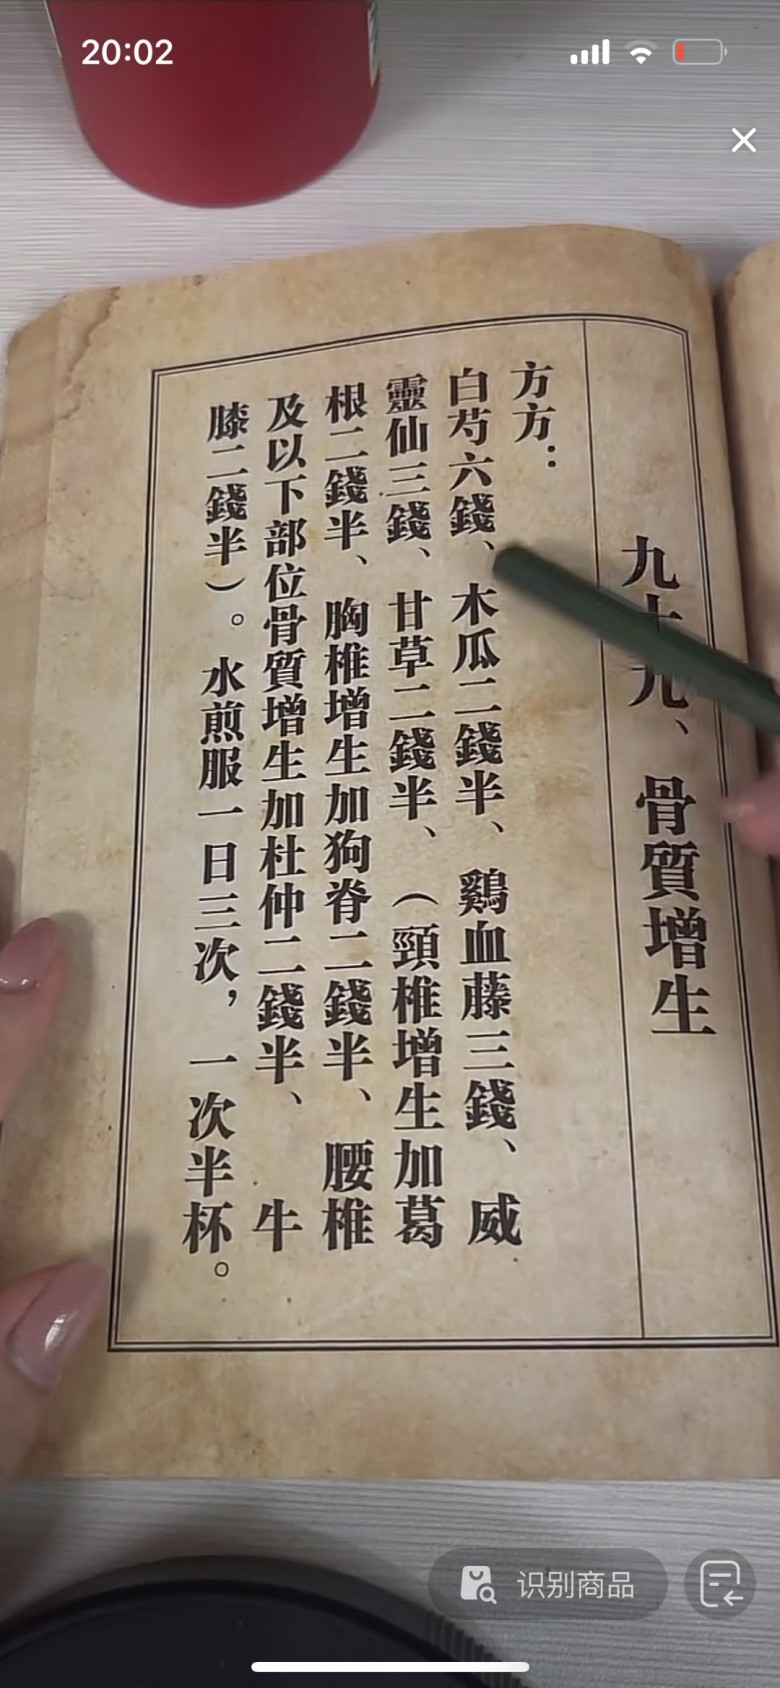 20:02
九十九、骨質增生
方方：
白芍六錢、木瓜二錢半、鷄血藤三錢、威
靈仙三錢、甘草二錢半、（頸椎增生加葛
根二錢半、胸椎增生加狗脊二錢半、腰椎
及以下部位骨質增生加杜仲二錢半、牛
膝二錢半）。水煎服一日三次，一次半杯。
识别商品